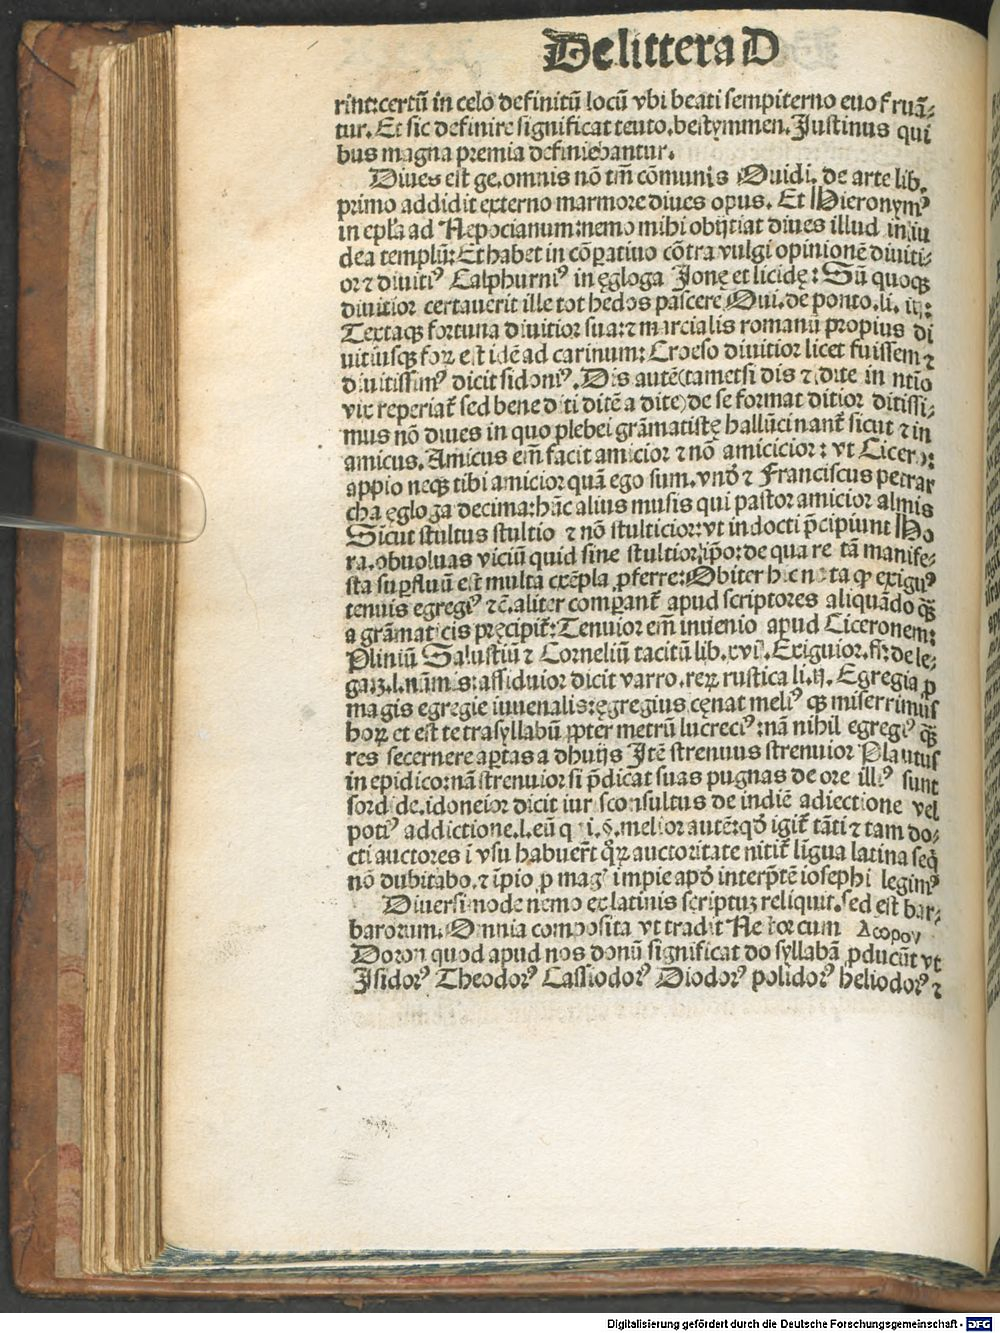 De littera D
rint:certū in celo definitū locū vbi beati sempiterno euo fruā⸗
tur. Et sic definire significat teuto. bestymmen. Justinus qui
bus magna premia definiebantur.
Diues est ge. omnis nō tm̄ cōmunis Ouidi. de arte lib.
primo addidit externo marmore diues opus. Et Hieronymꝰ
in epl̄a ad Nepocianum:nemo mihi obijtiat diues illud in iu
dea templū: Et habet in cōꝑatiuo cōtra vulgi opinionē diuiti⸗
or ⁊ diuitiꝰ Calphurniꝰ in ęgloga Jonę et licidę: Sū quoqꝫ
diuitior certauerit ille tot hedos pascere Oui. de ponto. li. iij:
Textaqꝫ fortuna diuitior sua:⁊ marcialis romanū propius di
uitiusqꝫ foꝝ est idē ad carinum: Croeso diuitior licet fuissem ⁊
diuitissimꝰ dicit sidoniꝰ. Dis autē(tametsi dis ⁊ dite in ntīo
vix reperiat̄ sed bene diti ditē a dite)de se format ditior ditissi⸗
mus nō diues in quo plebei grāmatistę hallūcinant̄ sicut ⁊ in
amicus. Amicus em̄ facit amicior ⁊ nō amicicior: vt Cicero:
appio neqꝫ tibi amicior quā ego sum. vnď ⁊ Franciscus petrar
cha ęgloga decima:hāc alius musis qui pastor amicior almis
Sicut stultus stultio ⁊ nō stulticior:vt indocti p̄cipiunt Ho
ra. obuoluas viciū quid sine stultior ip̄o:de qua re tā manife⸗
sta suꝑfluū est multa exēpla ꝓferre: Obiter hic nota ꝙ exiguꝰ
tenuis egregiꝰ ⁊c̄. aliter comꝑant̄ apud scriptores aliquādo qꝫ̄
a grāmaticis pręcipit̄: Tenuior em̄ inuenio apud Ciceronem:
Pliniū Salustiū ⁊ Corneliū tacitū lib. xvi. Exiguior. ff: de le⸗
gaꝫ. l. nūmis: assiduior dicit varro. reꝝ rustica li. ij. Egregia ꝓ
magis egregie iuuenalis:ęgregius cęnat meliꝰ qꝫ miserrimus
hoꝝ et est tetrasyllabū ꝓpter metrū lucreciꝰ:nā nihil egregiꝰ qꝫ̄
res secernere apertas a dhuijs Jtē strenuus strenuior Plautus
in epidico:nā strenuior si p̄dicat suas pugnas de ore illiꝰ sunt
sordide. idoneior dicit iurisconsultus de indiē adiectione vel
potiꝰ addictione. l. eū qui. §. melior autē:qď igit̄ tāti ⁊ tam do⸗
cti auctores ī vsu habuer̄t qͦꝝ auctoritate nitit̄ līgua latina seq̄
nō dubitabo. ⁊ īpio ꝓ magꝭ impie apď interp̄tē iosephi legimꝰ
Diuersimode nemo ex latinis scriptuꝫ reliquit. sed est bar⸗
barorum. Omnia composita vt tradit Nestor cum Δωρον
Doron quod apud nos donū significat do syllabā ꝓducūt vt
Jsidorꝰ Theodorꝰ Cassiodorꝰ Diodorꝰ polidorꝰ heliodorꝰ ⁊
Digitalisierung gefördert durch die Deutsche Forschungsgemeinschaft - DFG